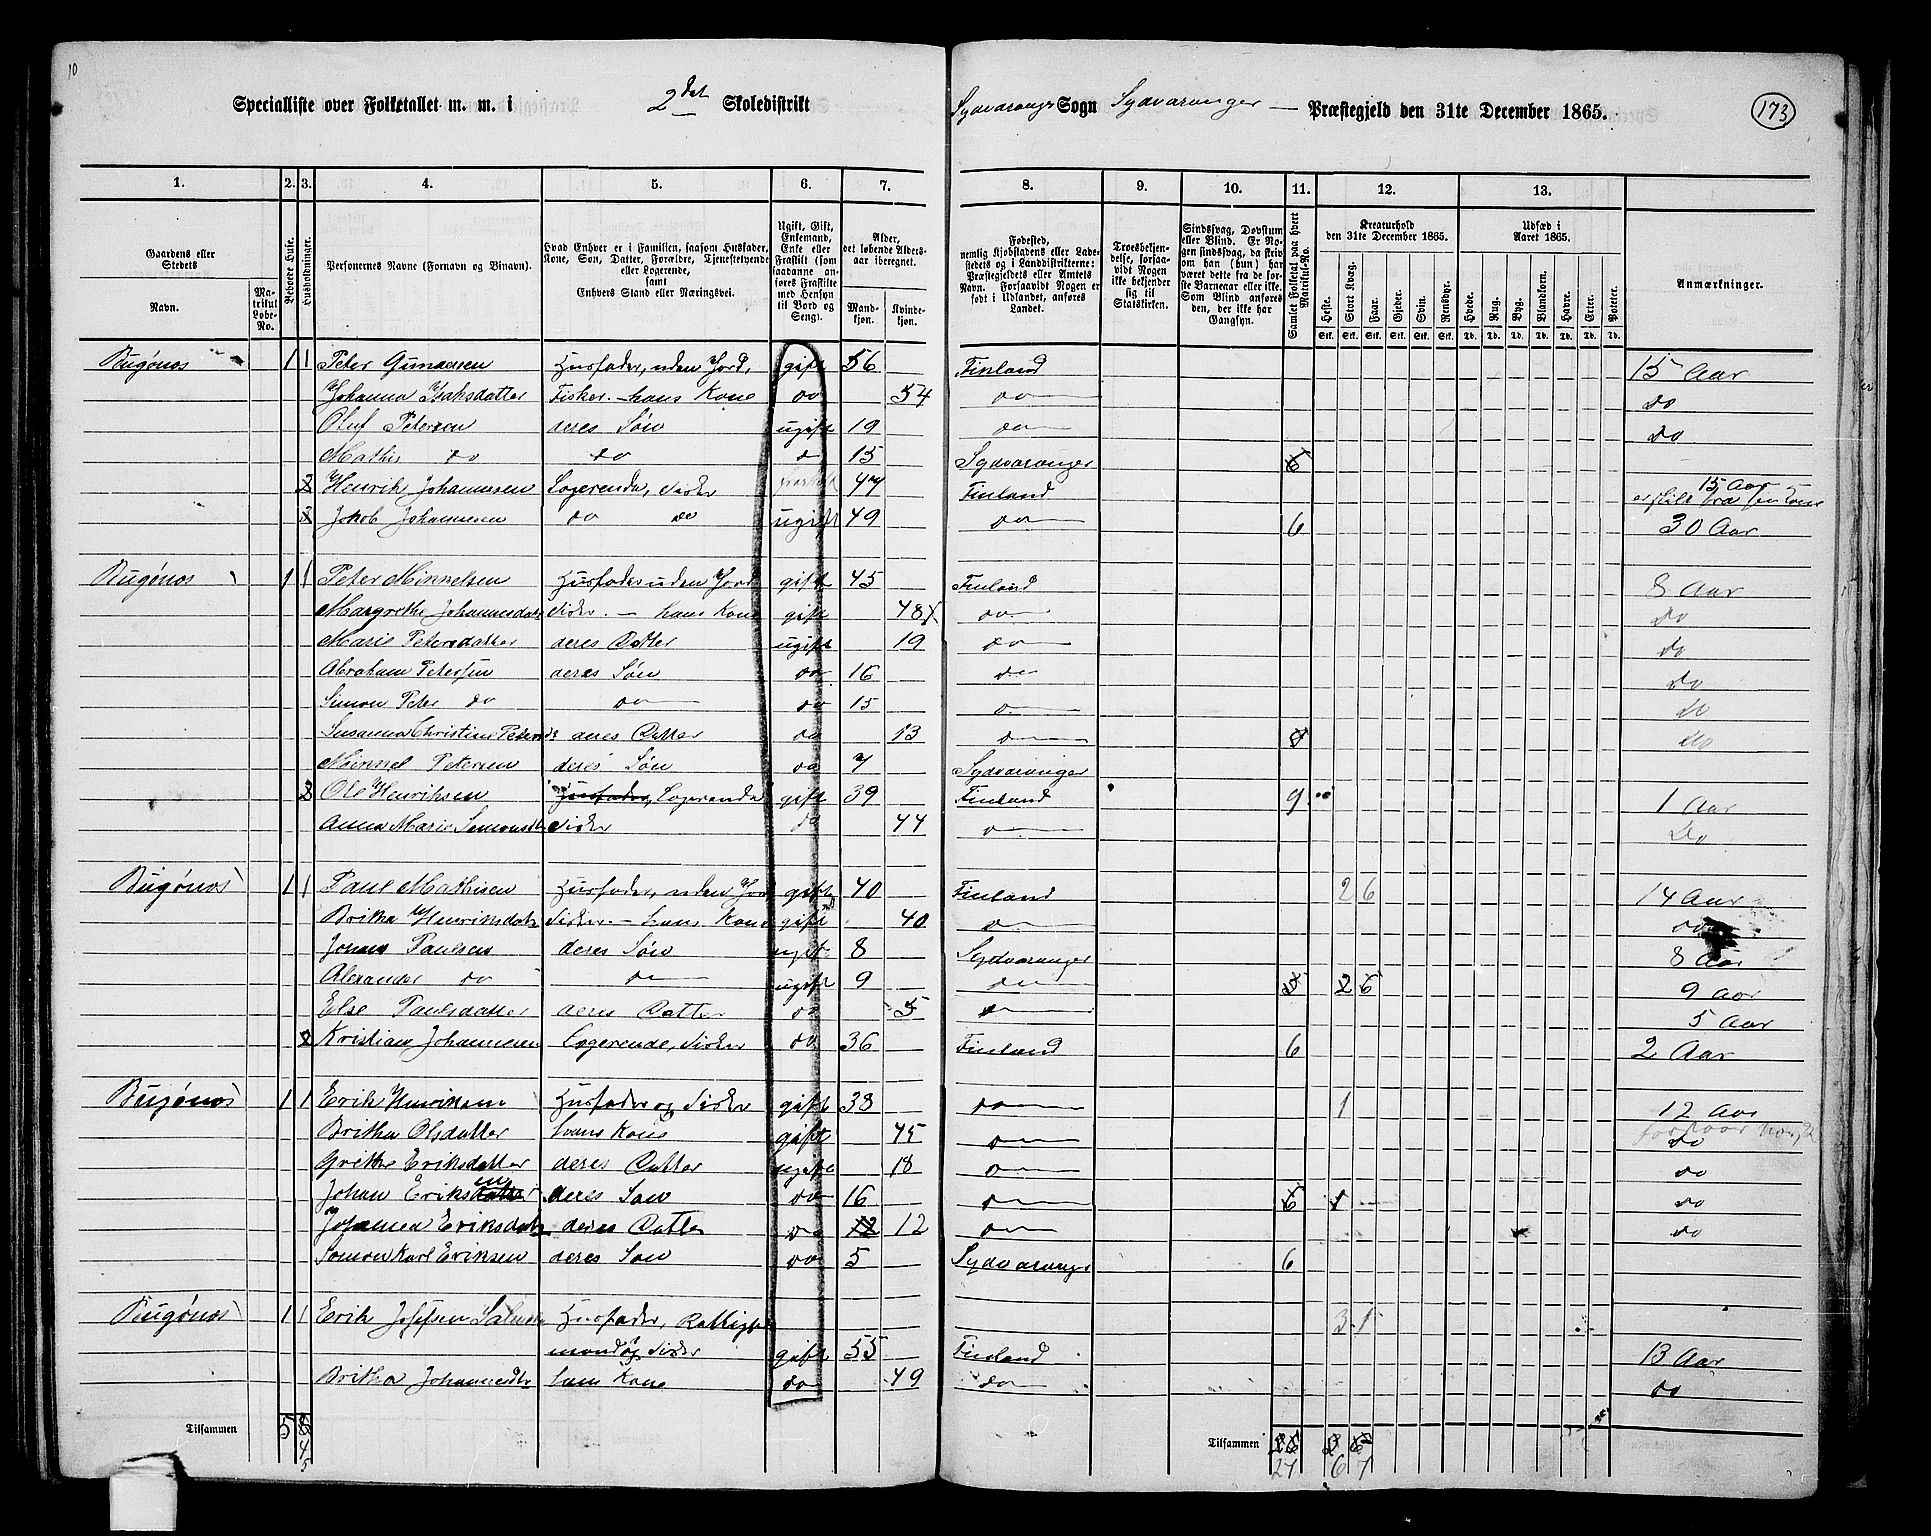 10
Specialliste over Folketallet m. m. i 2det Skoledistrikt Sydvaranger Sogn Sydvaranger Præstegjeld den 31te December 1865. 173
1. 2. 3. 4. 5. 6. 7. 8. 9. 10. 11. 12. 13.
Gaardens eller Stedets Navn. Matrikul Løbe-No. Beboede Huse. Husholdninger. Personernes Navne (Fornavn og Binavn). Hvad Enhver er i Familien, saasom Husfader, Kone, Søn, Datter, Forældre, Tjenestetyende eller Logerende, samt Enhvers Stand eller Næringsvei. Ugift, Gift, Enkemand, Enke eller Fraskilt (som saadanne anføres Fraskilte med Hensyn til Bord og Seng). Alder, det løbende Aldersaar iberegnet. Mandkjøn. Kvindekjøn.
Fødested, nemlig Kjøbstadens eller Ladestedets og i Landdistrikterne: Præstegjeldets eller Amtets Navn. Forsaavidt Nogen er født i Udlandet, anføres Landet. Troesbekjendelse, forsaavidt Nogen ikke bekjender sig til Statskirken. Sindssvag, Døvstum eller Blind. Samlet Folketal paa hvert Matrikul-No. Kreaturhold den 31te December 1865. Heste. Stort Kvæg. Faar. Gjeder. Svin. Rensdyr. Udsæd i Aaret 1865. Hvede. Rug. Byg. Blandkorn. Havre. Erter. Poteter. Anmærkninger.
Bugønæs 1 1 Peter Gunnersen Husfader, uden Jord, gift 56 Finland 15 Aar
Johanna Isaksdatter Fisker. - hans Kone do 54 do do
Oluf Petersen deres Søn ugift 19 do do
Mathis do do do 15 Sydvaranger 6
2 Henrik Johannesen Logerende, Fisker 47 Finland 15 Aar
3 Jakob Johannesen do do ugift 49 do 6 30 Aar
Bugønæs 1 1 Peter Minnelsen Husfader uden Jord gift 45 Finland 8 Aar
Margrethe Johannesdatr Fisker. - hans Kone gift 48 do do
Marie Petersdatter deres Datter ugift 19 do do
Abraham Petersen deres Søn do 16 do do
Simon Peter do do do 15 do do
Susanna Christine deres Datter do 13 do do
Minnel Petersen deres Søn do 7 Sydvaranger
2 Ole Henriksen Husfader, Logerende gift 39 Finland 9 1 Aar
Anna Marie Fisker do 44 do Do
Bugønæs 1 1 Paul Mathisen Husfader, uden Jord gift 40 Finland 2 6 14 Aar
Britha Henriksdatr Fisker. - hans Kone gift 40 do do
Johan Paulsen deres Søn ugift 8 Sydvaranger 8 Aar
Alexander do do ugift 9 do 5 2 6 9 Aar
Else Paulsdatter deres Datter do 5 do 5 Aar
2 Kristian Johannesen Logerende, Fisker do 36 Finland 6 2 Aar
Bugønæs 1 1 Erik Henriksen Husfader og Fisker gift 38 do 1 12 Aar
Britha Olsdatter hans Kone gift 45 do do
Grethe Eriksdatter deres Datter ugift 18 do do
Johan Eriksen deres Søn do 16 do 6 1 do
Johanna Eriksdatr deres Datter do 12 12 do do
Simon Karl Eriksen deres Søn do 5 Sydvaranger 6
Bugønæs 1 1 Erik Josefsen Husfader, 3 1
mand og Fisker gift 55 Finland 13 Aar
Britha Johannesdtr hans Kone do 49 do do
Tilsammen 5 8 4 5 Tilsammen 27 6 7